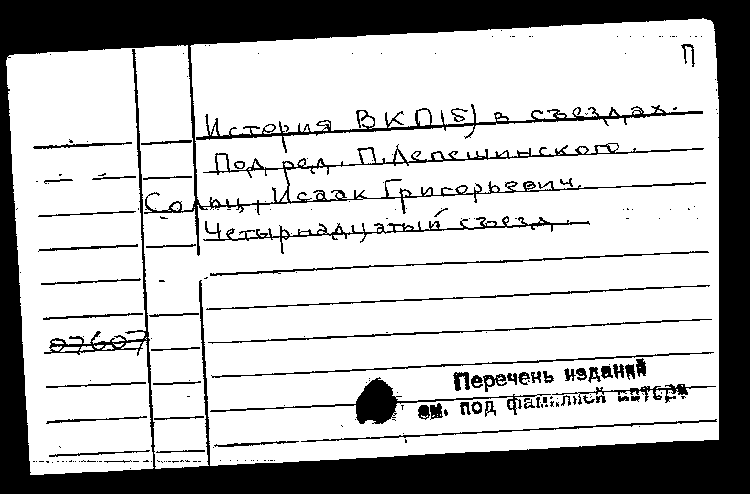 П
История ВКП(б) в съездах.
Под ред. П. Лепешинского.
Сольц, Исаак Григорьевич.
Четырнадцатый съезд.
07607
Перечень изданий
см. под фамилией автора